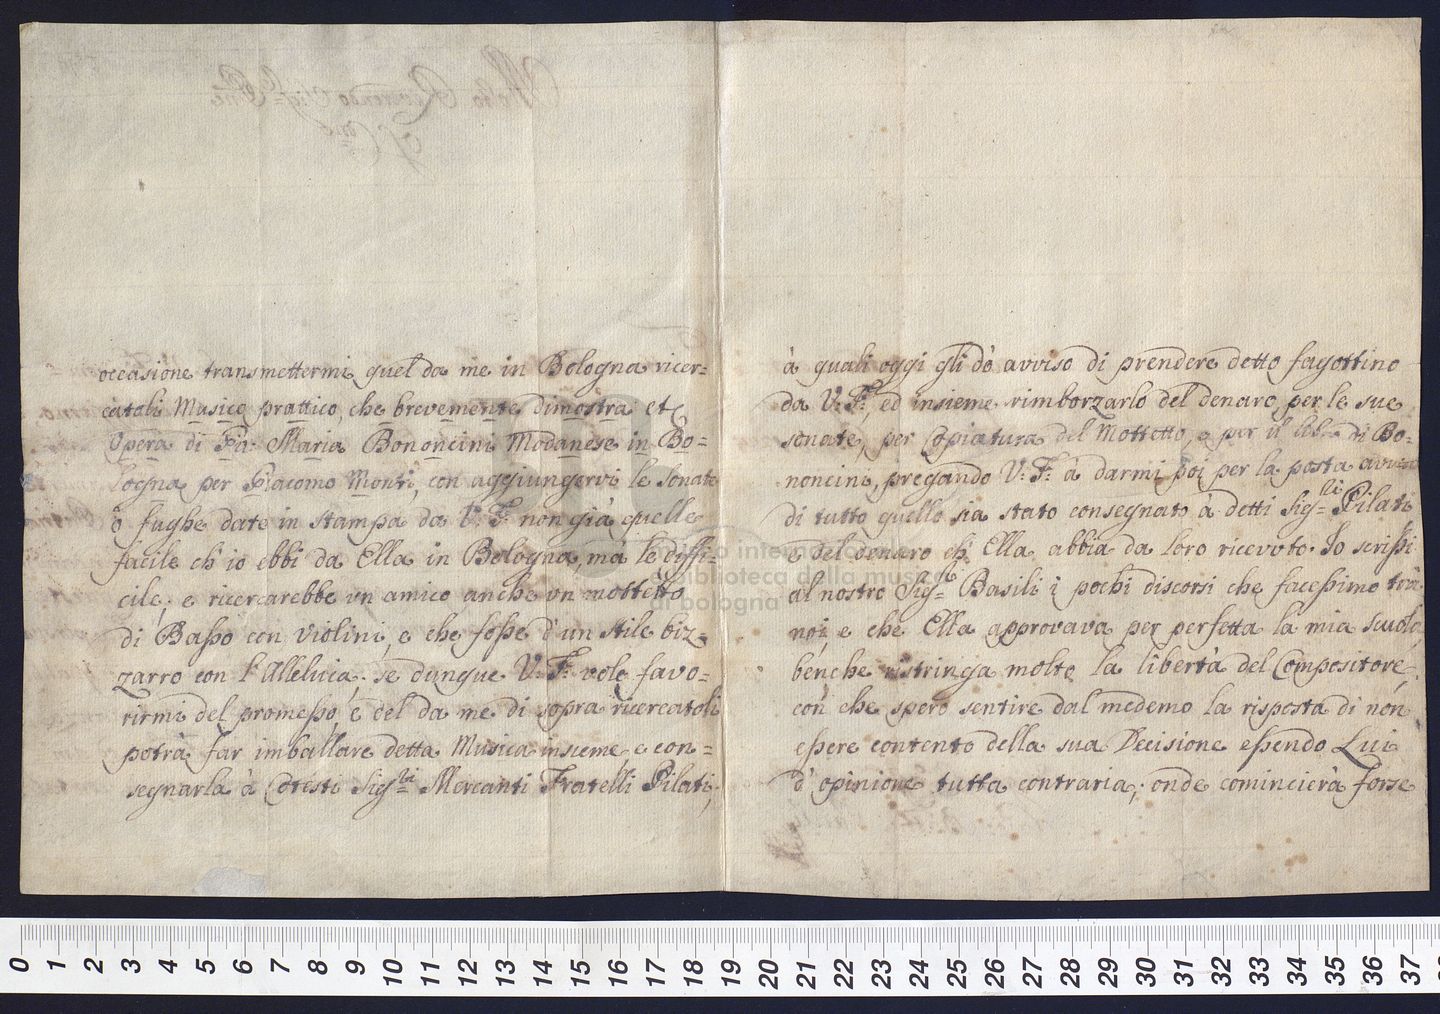 occasione transmettermi quel da me in Bologna ricer=
catali Musico prattico, che brevemente dimostra et
Opera di Gia: Maria Bononcini Modanese in Bo=
logna per Giacomo Monti, con aggiungervi le sonate
ò fughe date in stampa da V: S: non già quelle
facile ch' io ebbi da Ella in Bologna, mà le diffi=
cile; e ricercarebbe un amico anche un mottetto
di Basso con violini, e che fosse d'un stile biz=
zarro con l'Alleluia; se dunque V: S: vole favo=
rirmi del promesso, e del da me di sopra ricercatoli
potrà far imballare detta Musica insieme, e con=
segnarla à Cotesti Sig:ri Mercanti Fratelli Pilati;
à quali oggi gli dò avviso di prendere detto fagottino
da V: S: ed insieme rimborzarlo del denaro per le sue
sonate, per Copiatura del Mottetto, e per il libro di Bo=
noncini, pregando V: S: à darmi poi per la posta avviso
di tutto quello sia stato consegnato à detti Sig:ri Pilati
e del denaro ch' Ella abbia da loro ricevuto. Io scrissi
al nostro Sig: Basili i pochi discorsi che facessimo trà
noi, e che Ella approvava per perfetta la mia scuola
benche ristringa molto la libertà del Compositore,
con che spero sentire dal medemo la risposta di non
essere contento della sua Decisione essendo Lui
d' opinione tutta contraria; onde comincierà forse
0 1 2 3 4 5 6 7 8 9 10 11 12 13 14 15 16 17 18 19 20 21 22 23 24 25 26 27 28 29 30 31 32 33 34 35 36 37